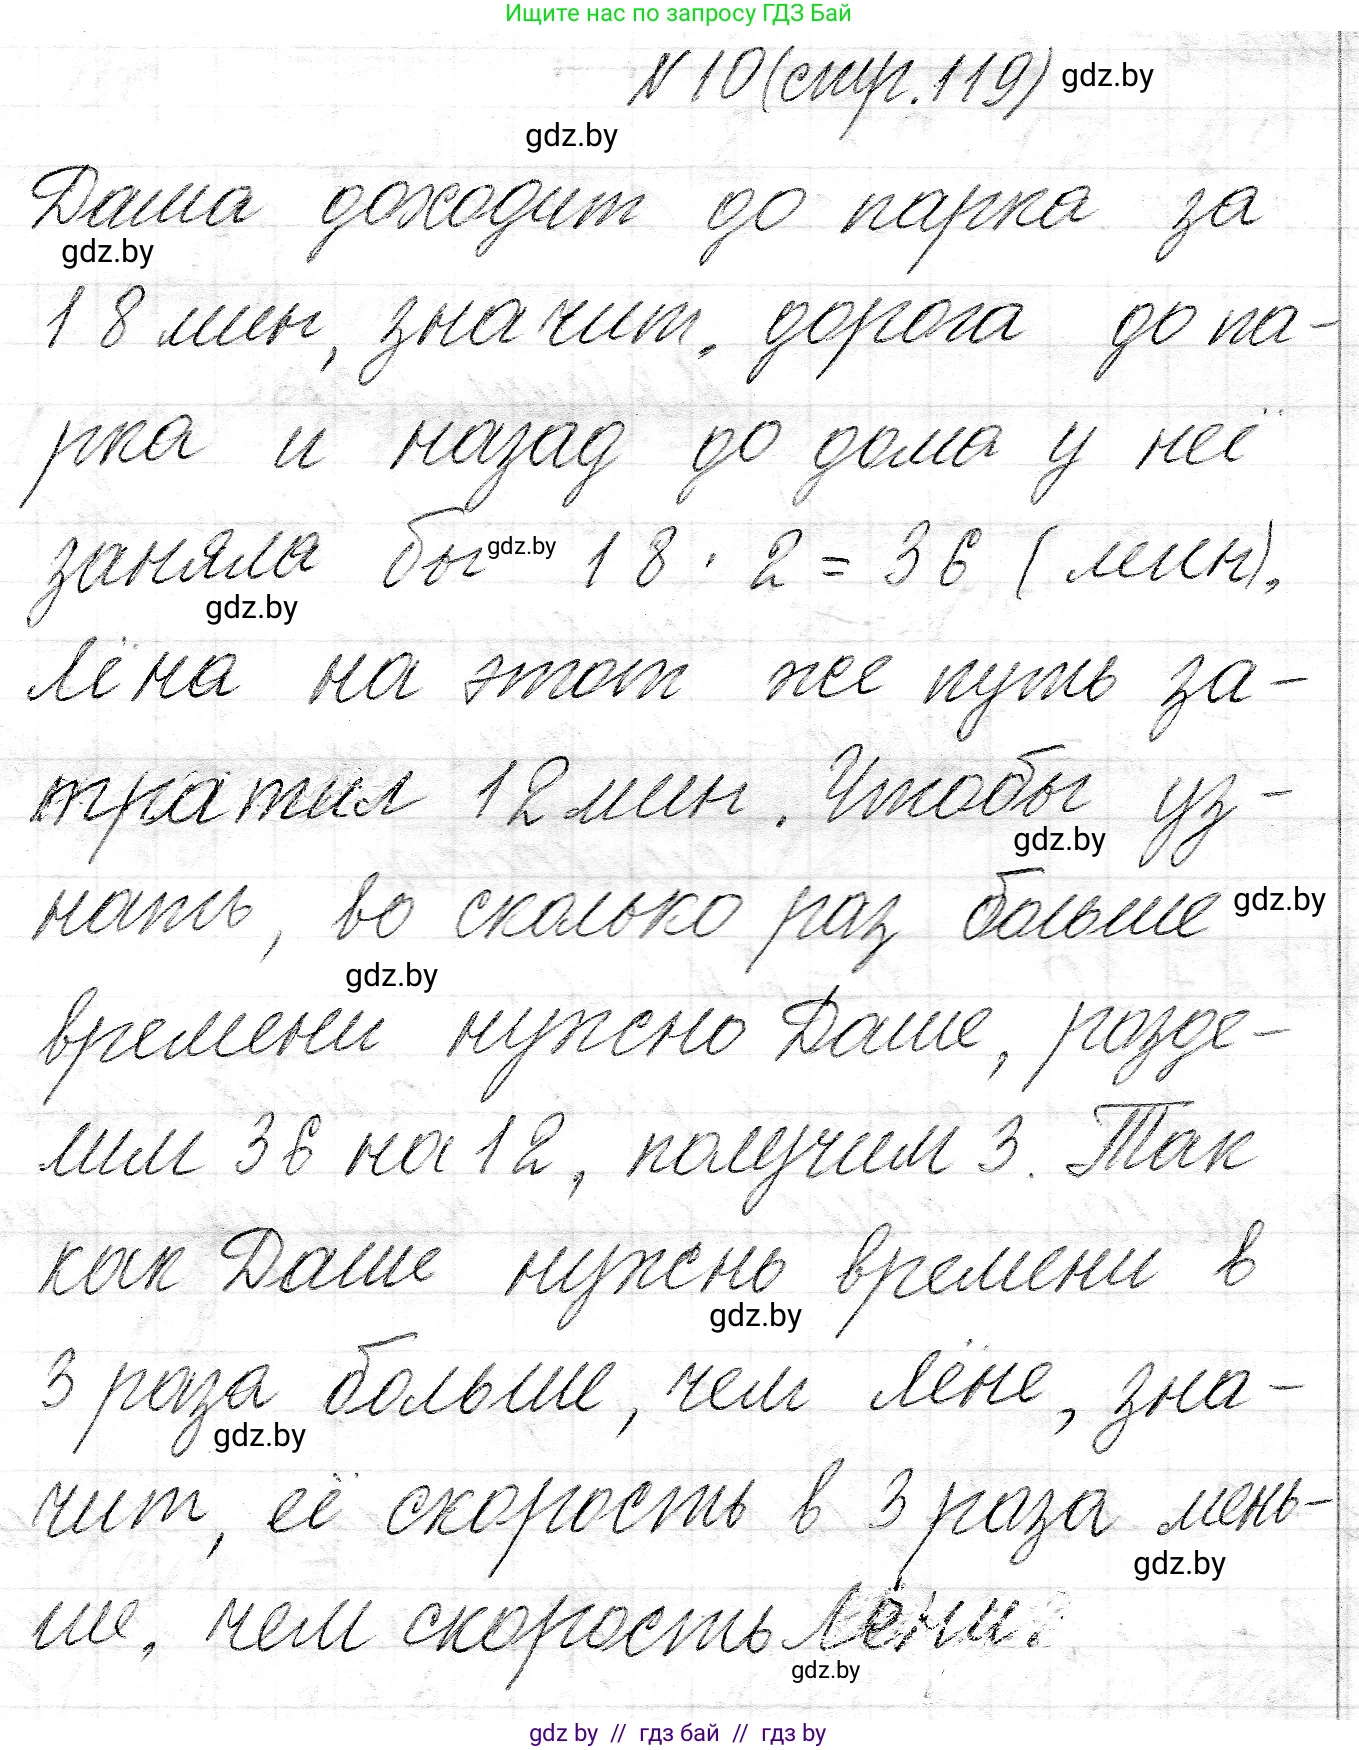 Ищите нас по запросу ГДЗ Бай
N 10 (стр. 119) gdz.by
gdz.by
Даша доходит до парка за
gdz.by
18 мин, значит, дорога до па-
рка и назад до дома у неё
заняла бы gdz.by 18 · 2 = 36 (мин),
gdz.by
Лёна на этот же путь за-
тратил 12 мин. Чтобы уз-
gdz.by
нать, во сколько раз больше gdz.by
gdz.by
времени нужно Даше, разде-
лим 36 на 12, получим 3. Так
как Даше нужнь времени в
gdz.by
3 раза больше, чем лёне, зна-
gdz.by
чит, её скорость в 3 раза мень-
gdz.by
ше, чем скорость Лёни.
gdz.by
gdz by // гдз бай // гдз by